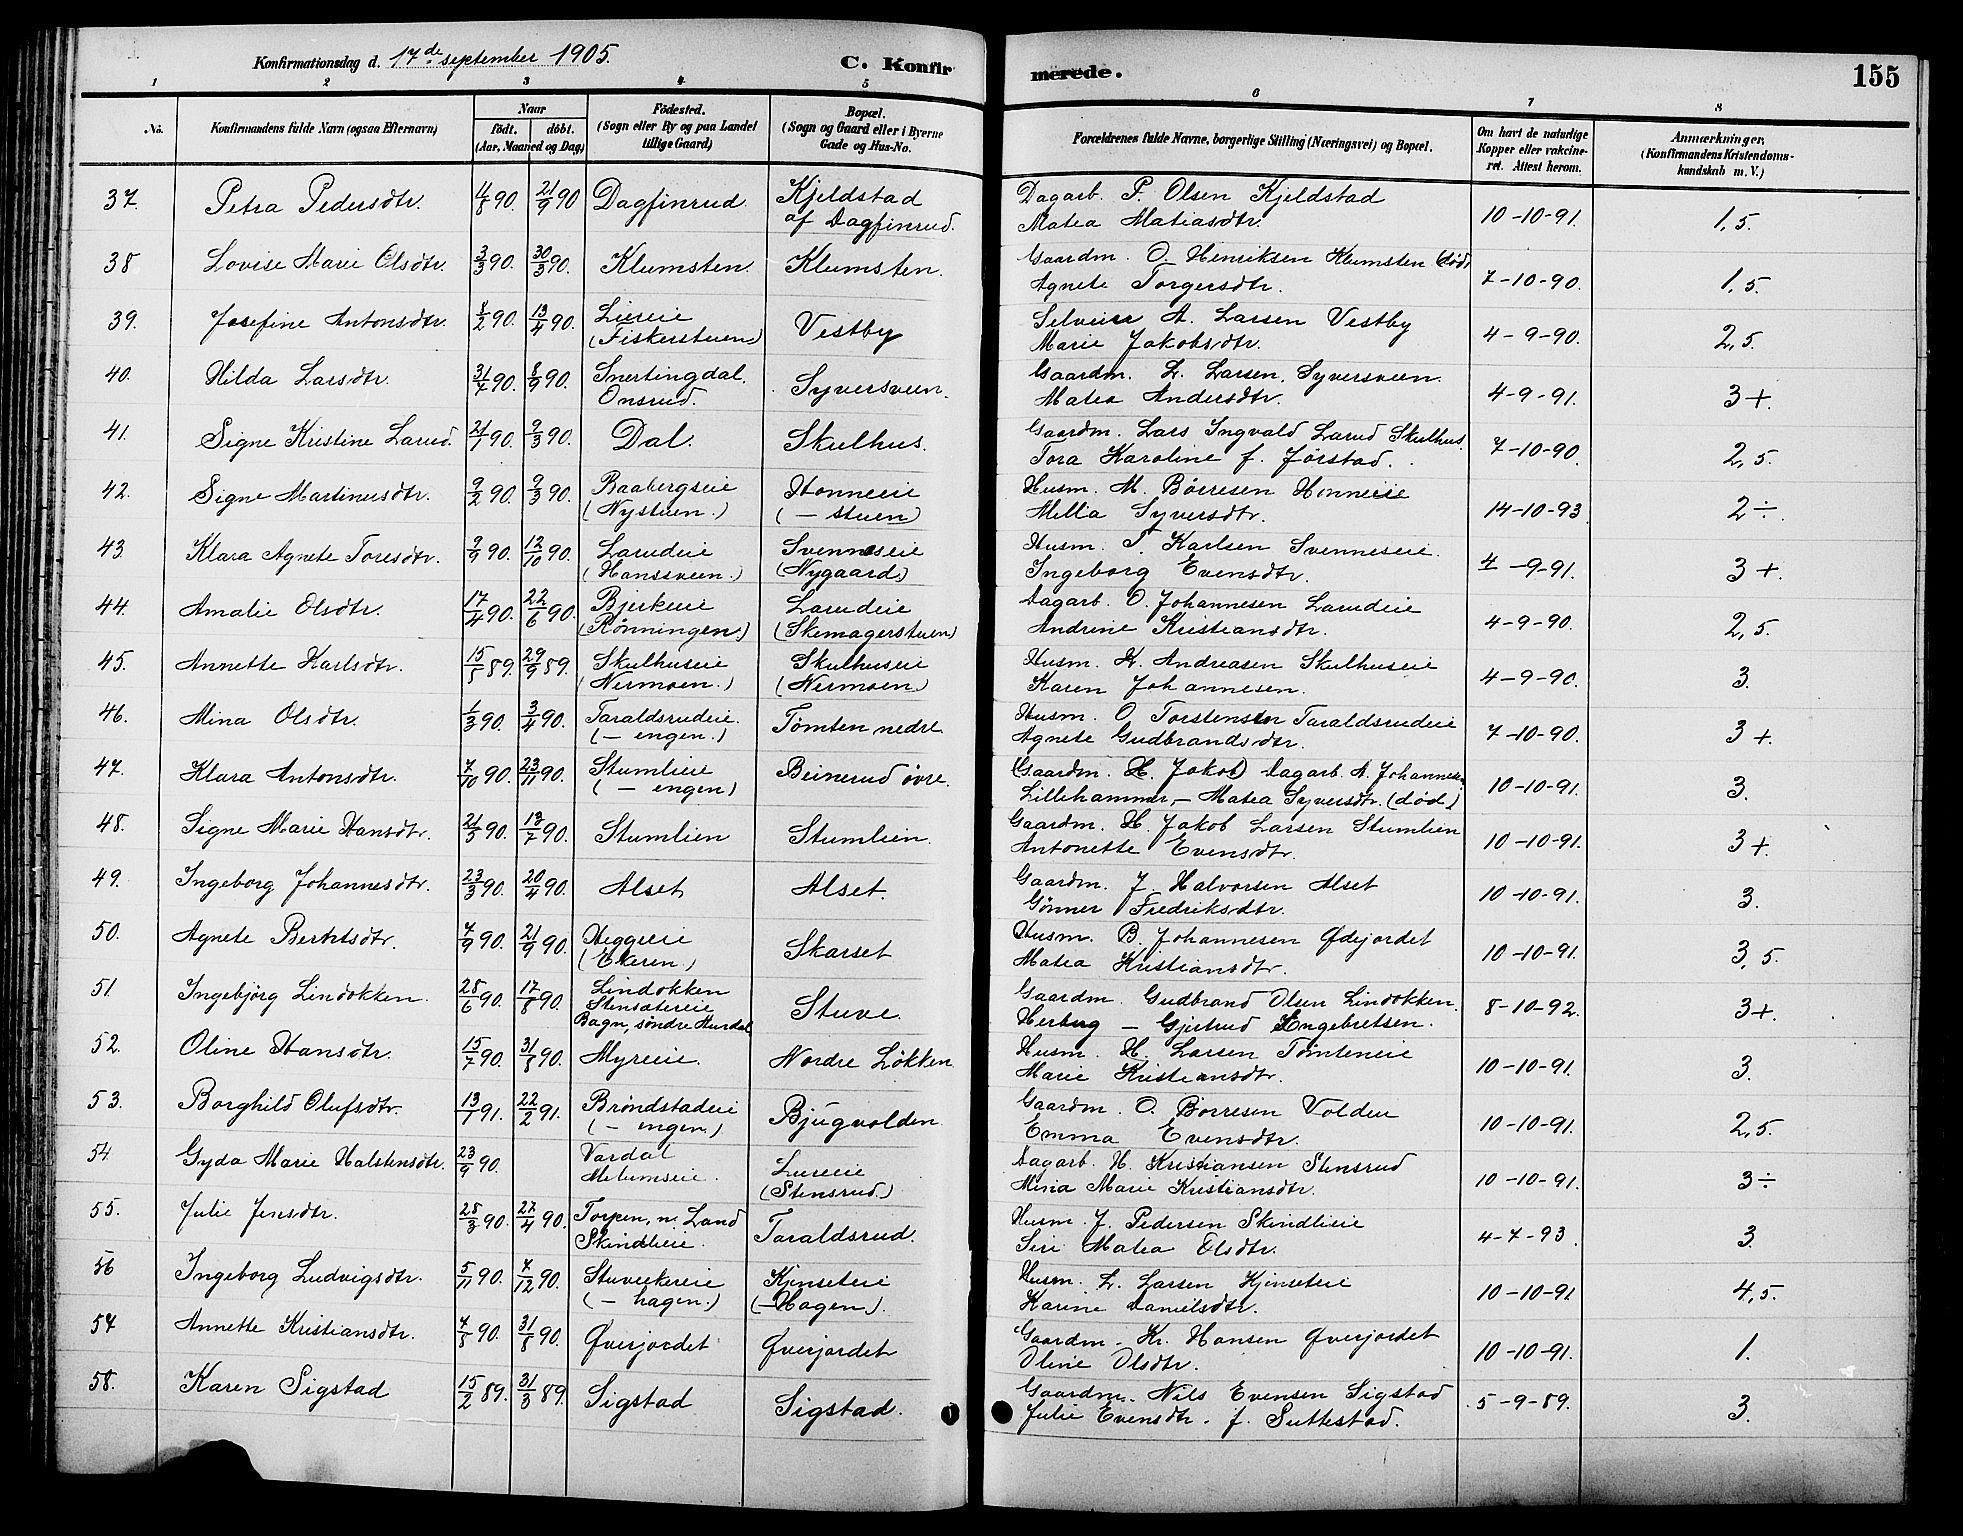 Konfirmationsdag d. 17de september 1905.
C. Konfirmerede.
155
1 2 3 4 5 6 7 8
No.
Konfirmandens fulde Navn (ogsaa Efternavn)
Naar
födt. döbt.
(Aar, Maaned og Dag)
Födested.
(Sogn eller By og paa Landet
tillige Gaard)
Bopæl.
(Sogn og Gaard eller i Byerne
Gade og Hus-No.
Forældrenes fulde Navne, borgerlige Stilling (Næringsvei) og Bopæl.
Om havt de naturlige
Kopper eller vakcine-
ret. Attest herom.
Anmærkninger,
(Konfirmandens Kristendoms-
kundskab m. V.)
37. Petra Pedersdtr. 4/8 90. 21/9 90 Dagfinrud Kjeldstad Dagarb. P. Olsen Kjeldstad 10-10-91. 1,5.
af Dagfinrud. Matea Matiasdtr.
38 Lovise Marie Olsdtr. 3/3 90. 30/3 90. Klumsten. Klumsten. Gaardm. O. Henriksen Klumsten (død) 7-10-90. 1,5.
Agnete Torgersdtr.
39. Josefine Antonsdtr. 8/2 90. 13/4 90. Liereie Vestby A. Larsen Vestby 4-9-90. 2,5.
(Fiskerstuen) Marie Jakobsdtr.
40. Hilda Larsdtr. 31/7 90. 8/9 90. Snertingdal, Syversveen. Gaardm. L. Larsen, Syversveen. 4-9-91. 3+.
Onsrud. Matea Andersdtr.
41. Signe Kristine Larud. 21/1 90. 9/3 90. Dal. Skulhus. Gaardm. Lars Ingvald Larud Skulhus. 7-10-90. 2,5.
Tora Karoline f. Jørstad.
42. Signe Martinusdtr. 9/2 90. 9/3 90. Baabergseie Honneeie Husm. M. Börresen Honneeie 14-10-93 2÷.
(Nystuen.) (— stuen) Mellia Syversdtr.
43. Klara Agnete Toresdtr. 9/9 90. 12/10 90. Larudeie Svenneseie Husm. T. Karlsen Svenneseie. 4-9-91. 3+.
(Hanssveen.) (Nygaard) Ingeborg Evensdtr.
44. Amalie Olsdtr. 17/4 90. 22/6 90. Bjerkeeie Larudeie Dagarb. O. Johannesen Larudeie 4-9-90. 2,5.
(Rönningen.) (Skomagerstuen) Andrine Kristiansdtr.
45. Annette Karlsdtr. 15/8 89. 29/9 89. Skulhuseie Skulhuseie Husm. K. Andreasen Skulhuseie 4-9-90. 3.
(Nermoen.) (Nermoen.) Karen Johannesen.
46. Mina Olsdtr. 1/3 90. 3/4 90. Taraldsrudeie. Tømten nedre Husm. O. Torstensen Taraldsrudeie 7-10-90. 3+.
(— engen.) Agnete Gudbrandsdtr.
47. Klara Antonsdtr. 7/10 90. 23/11 90. Stumlieie Beinerud övre. (Gaardm. H. Jakob) Dagarb. A. Johannesen 10-10-91. 3.
(— engen) Lillehammer, — Matea Syversdtr. (död)
48. Signe Marie Hansdtr. 21/3 90. 13/7 90. Stumlien Stumlien. Gaardm. H. Jakob Larsen Stumlien 10-10-91. 3+.
Antonette Evensdtr.
49. Ingeborg Johannesdtr. 23/3 90. 20/4 90. Alset Alset. Gaardm. J. Halvorsen Alset 10-10-91. 3.
Gönner Fredriksdtr.
50. Agnete Berntsdtr. 7/9 90. 21/9 90. Heggeeie Skarset Husm. B. Johannesen Ødejordet 10-10-91. 3,5.
(Ekeren.) Matea Kristiansdtr.
51. Ingebjörg Lindokken. 28/6 90. 17/8 90. Lindokken Stuve. Gaardm. Gudbrand Olsen Lindokken. 8-10-92. 3+.
Bagn, söndre Gjertrud Engebretsen.
52. Oline Hansdtr. 15/7 90. 31/8 90. Myreeie. Nordre Løkken Husm. H. Larsen Tømteneie 10-10-91. 3.
Marie Kristiansdtr.
53. Borghild Olufsdtr. 13/1 91. 22/2 91. Bröndstadeie Bjugvolden Gaardm. O. Börresen Volden 10-10-91. 2,5.
(— engen.) Emma Evensdtr.
54 Gyda Marie Halstensdtr. 23/9 90. Vardal Liereie Dagarb. H. Kristiansen Stensrud 10-10-91. 3÷
Melumseie. (Stensrud.) Mina Marie Kristiansdtr.
55. Julie Jensdtr. 28/3 90. 27/4 90. Torpen, n. Land Taraldsrud. Husm. J. Pedersen Skindlieie 4-7-93. 3.
Skindlieie. Siri Matea Olsdtr.
56 Ingeborg Ludvigsdtr. 5/11 90. 7/12 90. Stuvekereie Kjinseteie Husm. L. Larsen Kjinseteie 10-10-91 4,5.
(— hagen.) (— Hagen). Karine Danielsdtr.
57 Annette Kristiansdtr. 7/8 90. 31/8 90. Øverjordet Øverjordet Gaardm. Kr. Hansen Øverjordet 10-10-91. 1.
Oline Olsdtr.
58. Karen Sigstad 15/2 89. 31/3 89. Sigstad Sigstad. Gaardm. Nils Evensen Sigstad 5-9-89. 3.
Julie Evensdtr. f. Suttestad.